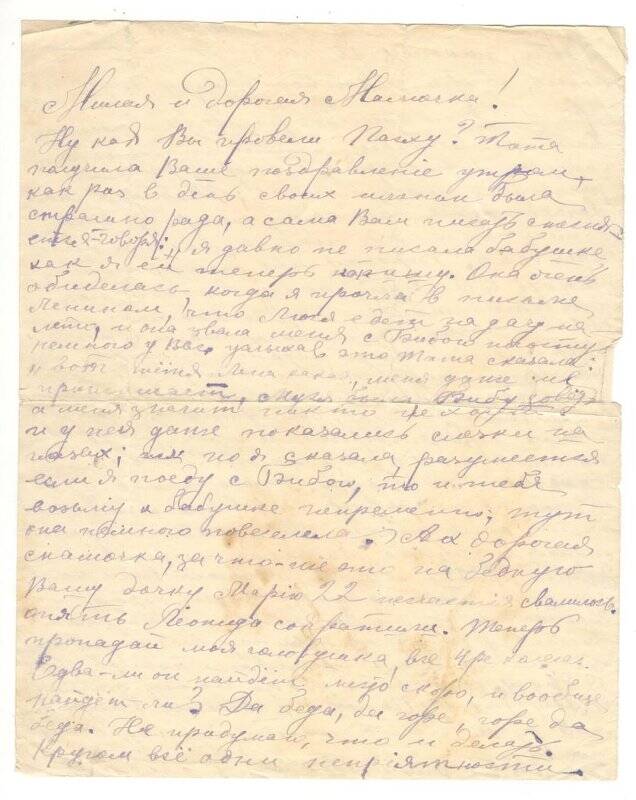 Милая и дорогая Мамочка!
Ну как Вы провели Пасху? Тата
получила Ваше поздравление утром,
как раз в день своих именин была
страшно рада, а сама Вам писать
говоря: я давно не писала бабушке,
как я ей теперь напишу. Она очень
обиделась когда я прочла в письме
что Люся с дет. за дачу на
лето, и она звала меня с Бибой
немного у Вас, услыхав это Тата сказала:
и вот тётя какая, меня даже не
приглашает, Бибу зовёт
а меня значит никто не хочет
и у ней даже показались слёзки на
глазах; но я сказала, разумеется
если я поеду с Бибой, то и тебя
возьму к бабушке непременно; тут
она немного повеселела. Ах дорогая
мамочка, за что-же это на бедную
Вашу дочку Марію 22 несчастья свалилось.
опять Леонида сократили. Теперь
пропадай моя головушка, все
Едва-ли он найдёт место скоро, и вообще
найдёт ли? Да беда, да горе, горе да
беда. Не придумаю, что и делать.
Кругом всё одни непріятности.